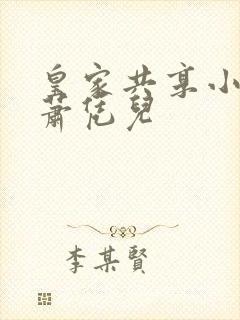 皇家共享小
蕭兒
李某賢